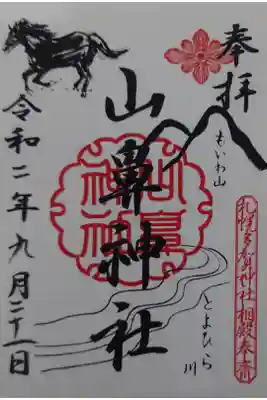 奉拝
もいわ山
札幌多賀神社相殿奉斎
山鼻神社
山鼻
神社
とよひら
川
令和二年九月二十一日